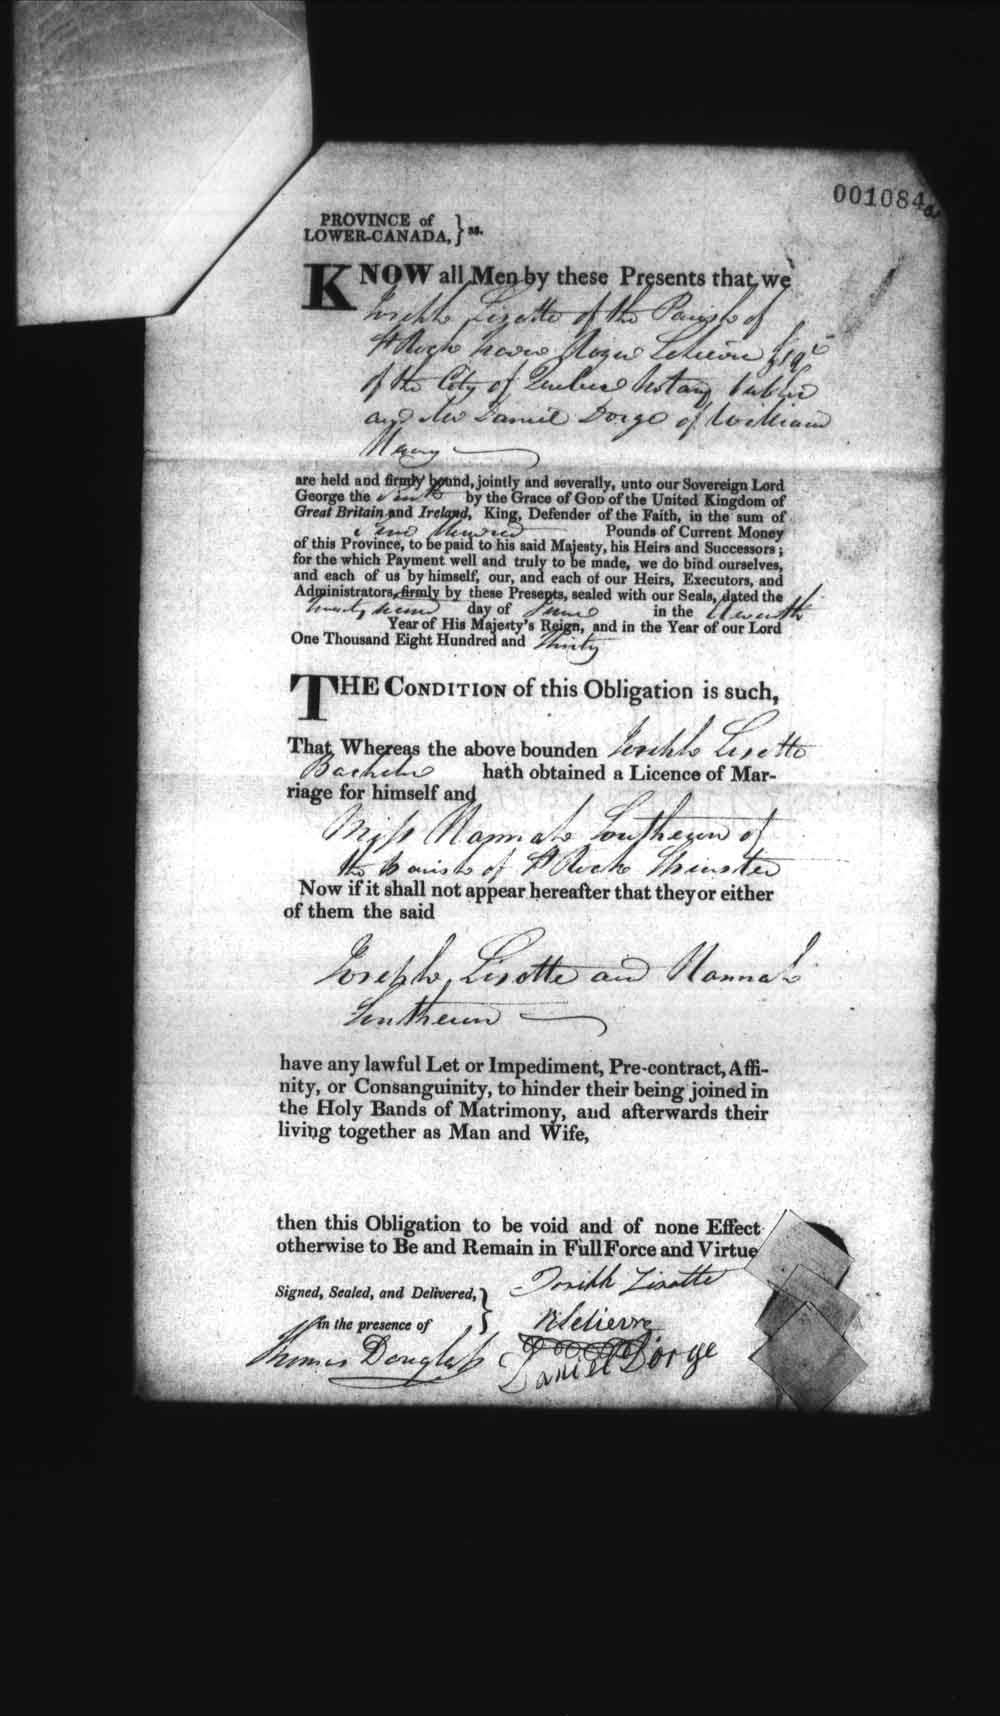 001084a
PROVINCE of
LOWER-CANADA, } ss.
KNOW all Men by these Presents that we
Joseph Lizotte of the Parish of
St Roch Roger Lelievre Esqe
of the City of Quebec Notary Public
and Mr Daniel Dorge of William
Henry
are held and firmly bound, jointly and severally, unto our Sovereign Lord
George the by the Grace of GOD of the United Kingdom of
Great Britain and Ireland, King, Defender of the Faith, in the sum of
Hundred Pounds of Current Money
of this Province, to be paid to his said Majesty, his Heirs and Successors;
for the which Payment well and truly to be made, we do bind ourselves,
and each of us by himself, our, and each of our Heirs, Executors, and
Administrators, firmly by these Presents, sealed with our Seals, dated the
twenty second day of June in the Eleventh
Year of His Majesty's Reign, and in the Year of our Lord
One Thousand Eight Hundred and Thirty
THE CONDITION of this Obligation is such,
That Whereas the above bounden Joseph Lizotte
Bachelor hath obtained a Licence of Mar-
riage for himself and
Miss Hannah Southeron of
the Parish of St Roch Spinster
Now if it shall not appear hereafter that they or either
of them the said
Joseph Lizotte and Hannah
Southeron
have any lawful Let or Impediment, Pre-contract, Affi-
nity, or Consanguinity, to hinder their being joined in
the Holy Bands of Matrimony, and afterwards their
living together as Man and Wife,
then this Obligation to be void and of none Effect
otherwise to Be and Remain in Full Force and Virtue
Signed, Sealed, and Delivered, } Joseph Lizotte
in the presence of R Lelievre
Thomas Douglass Daniel Dorge